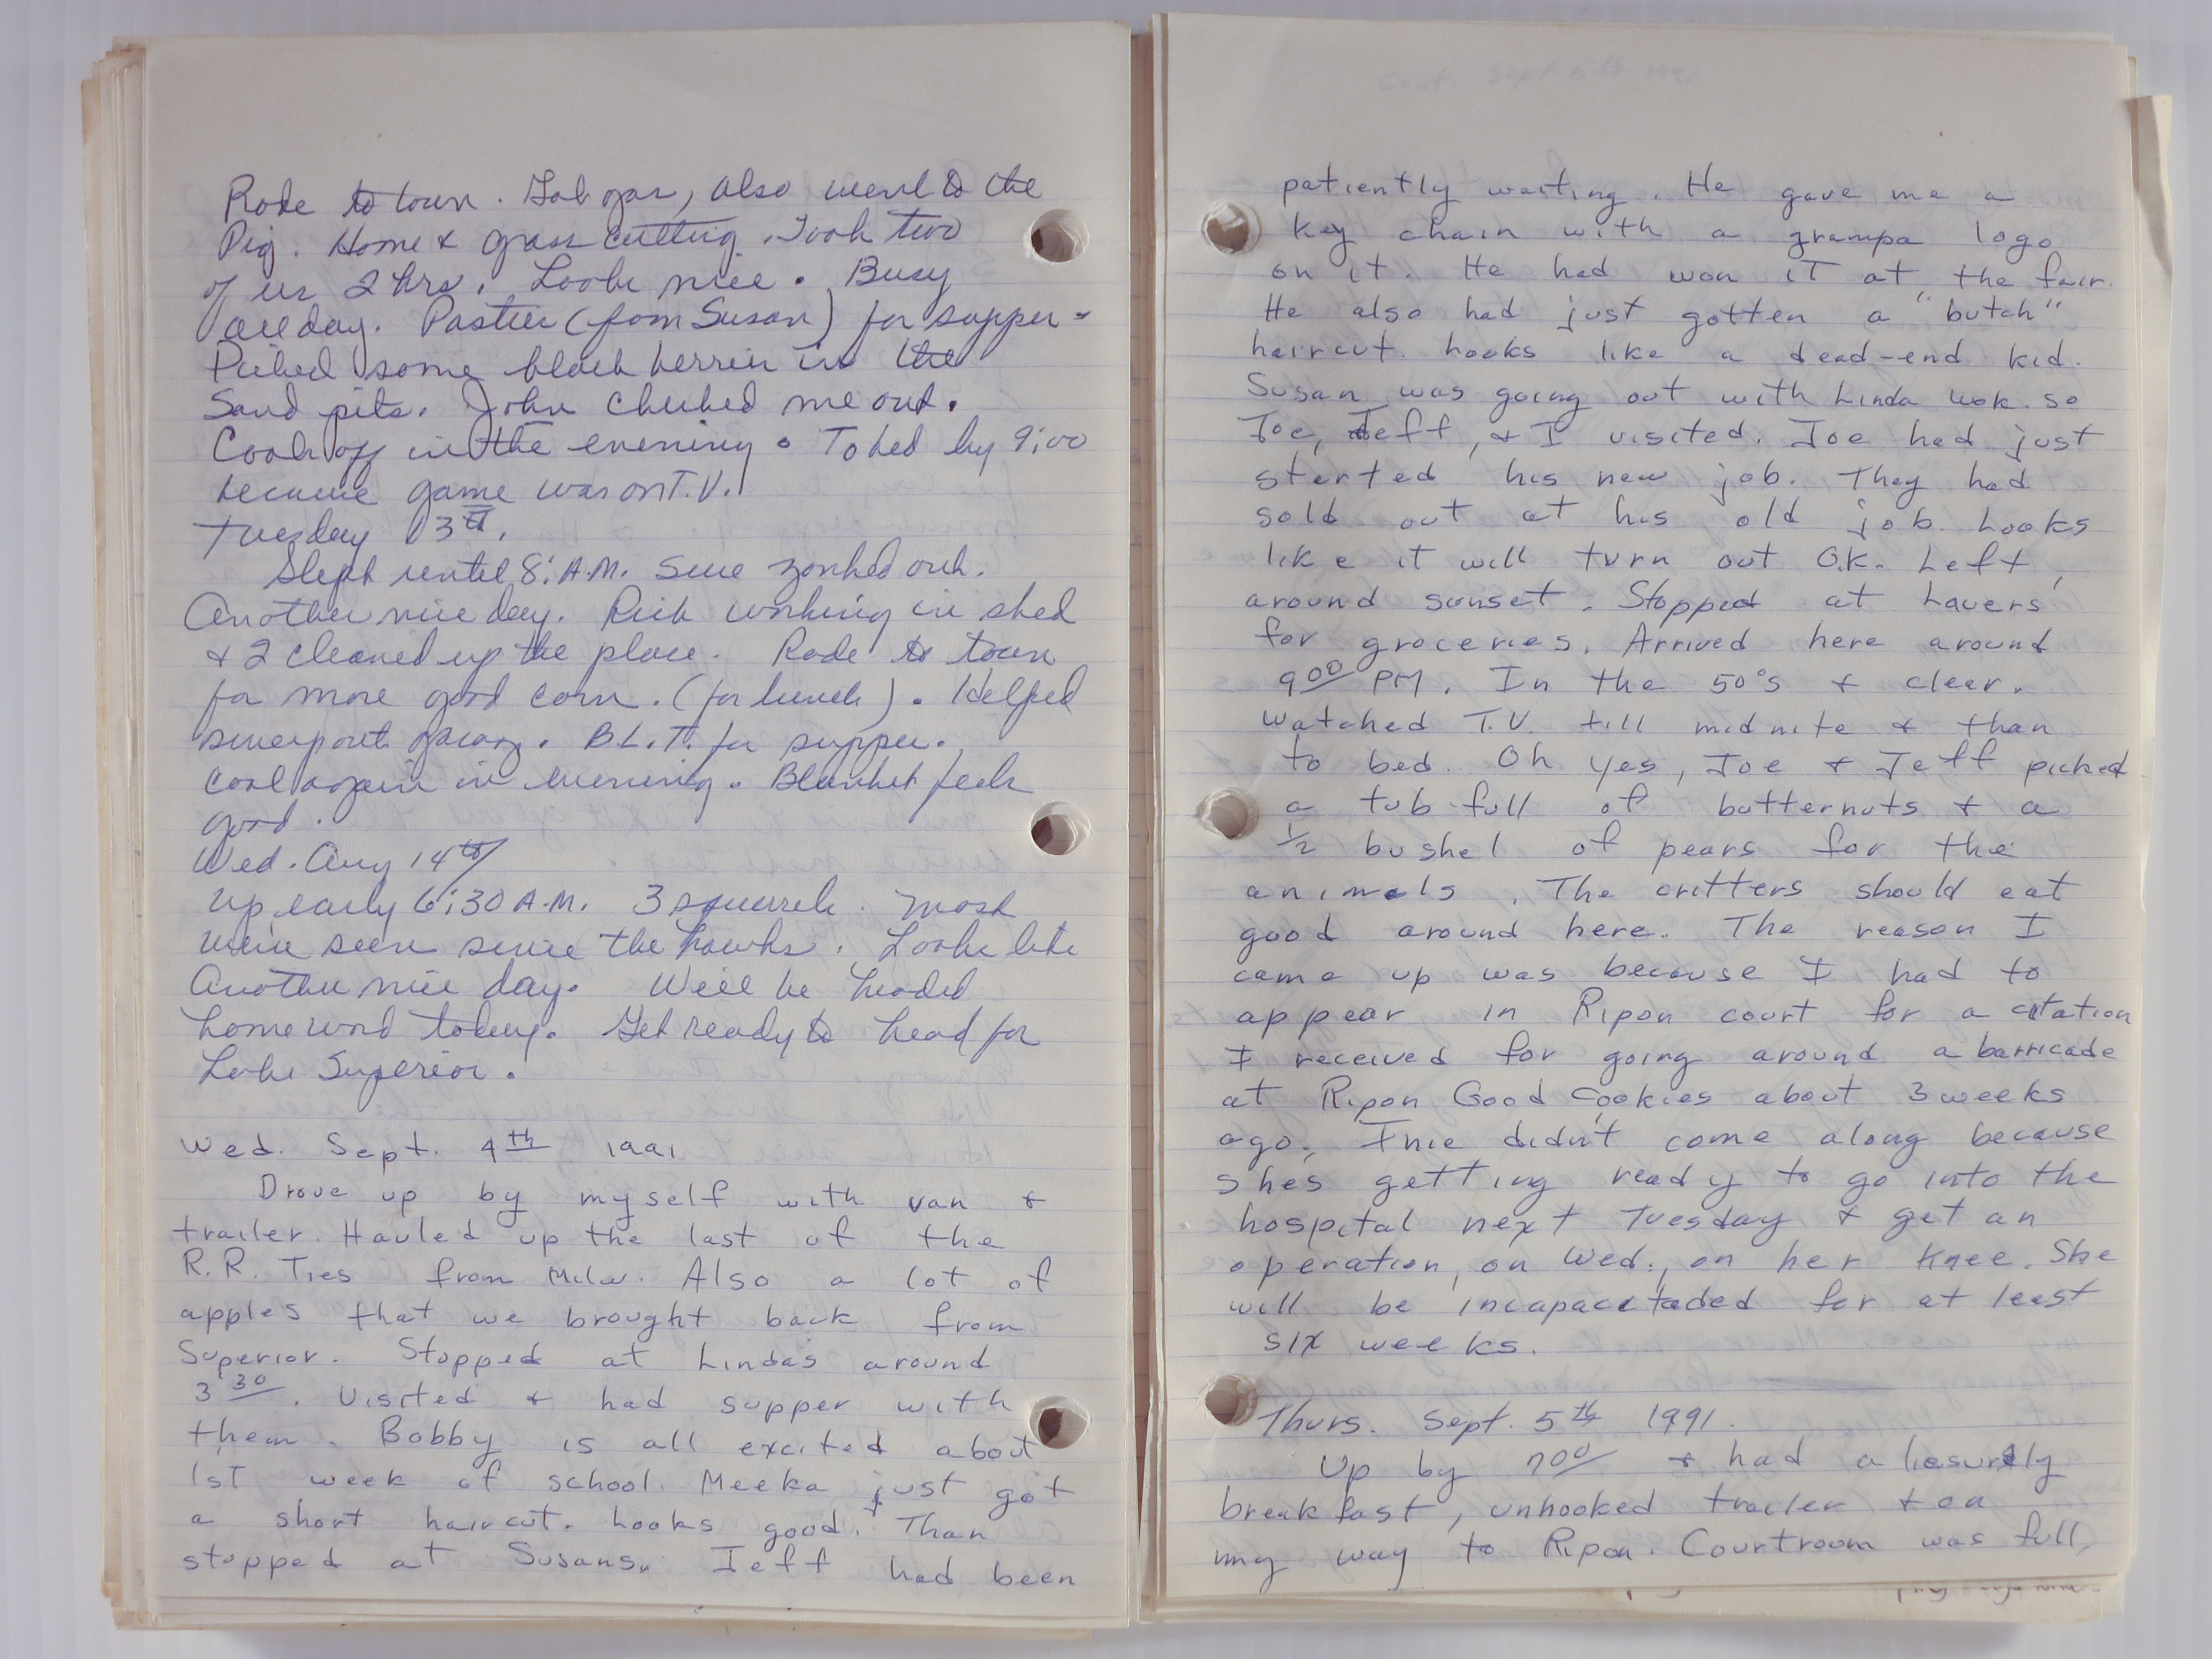 Rode to town. Got gas, also went to the
Pig. Home & grass cutting. Took two
of us 2 hrs. Looks nice. Busy
all day. Pasties (from Susan) for supper -
Picked some black berries in the
Sand pits. John checked me out.
Cools off in the evening. To bed by 9:00
because game was on T.V.
Tuesday 13th.
Slept until 8: A.M. Sure zonked out.
Another nice day. Rick working in shed
& I cleaned up the place. Rode to town
for more good corn. (for lunch). Helped
sweep out garag. B.L.T. for supper.
Cool again in evening. Blanket feels
good.
Wed. Aug 14th
Up early 6:30 A.M. 3 squirrels. Most
we've seen since the hawks. Looks like
Another nice day. We'll be headed
homeward today. Get ready to head for
Lake Superior.
Wed. Sept. 4th 1991
Drove up by myself with van &
trailer. Hauled up the last of the
R.R. Ties from Milw. Also a lot of
apples that we brought back from
Superior. Stopped at Lindas around
3 30. Visited & had supper with
them. Bobby is all excited about
1st week of school. Meeka just got
a short haircut. Looks good. Than
stopped at Susans. Jeff had been
Cont. Sept 5th 1991
patiently waiting. He gave me a
key chain with a grampa logo
on it. He had won it at the fair.
He also had just gotten a "butch"
haircut. Looks like a dead-end kid.
Susan was going out with Linda Wok. so
Joe, Jeff, & I visited. Joe had just
started his new job. They had
sold out at his old job. Looks
like it will turn out O.K. Left
around sunset. Stopped at Lavers
for groceries. Arrived here around
9 00 PM. In the 50°s & clear.
Watched T.V. till midnite & than
to bed. Oh yes, Joe & Jeff picked
a tub full of butternuts & a
1/2 bushel of pears for the
animals. The critters should eat
good around here. The reason I
came up was because I had to
appear in Ripon court for a citation
I received for going around a barricade
at Ripon Good Cookies about 3 weeks
ago. Inie didn't come along because
shes getting ready to go into the
hospital next Tuesday & get an
operation, on Wed., on her knee. She
will be incapacitaded for at least
six weeks.
Thurs. Sept. 5th 1991.
Up by 7 00 & had a liesurely
breakfast, unhooked trailer & on
my way to Ripon. Courtroom was full,